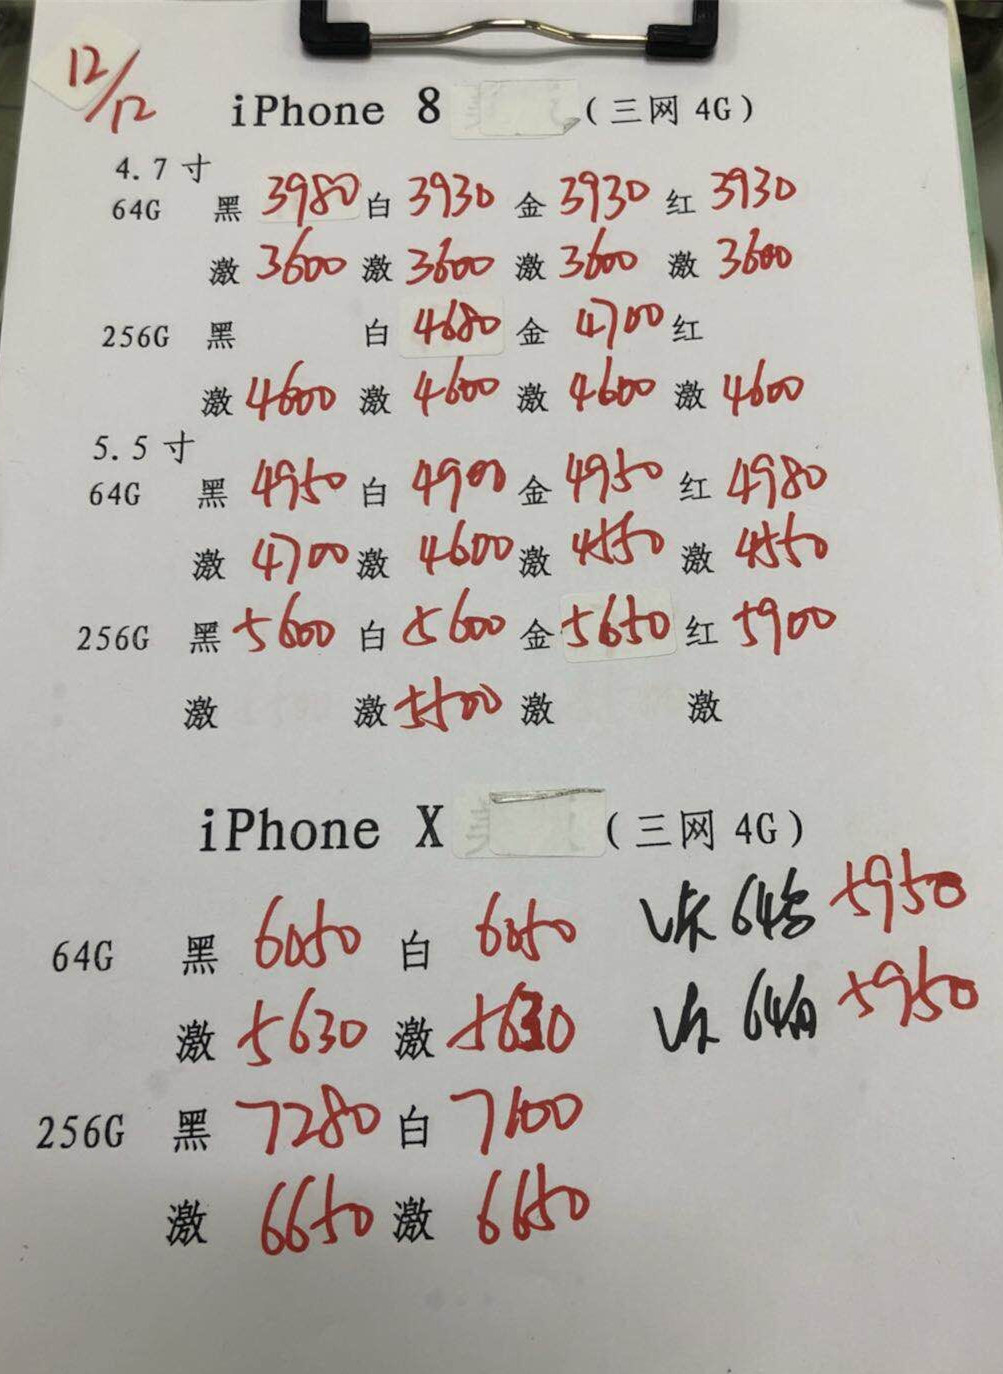 12/12
iPhone 8 (三网 4G)
4.7 寸
64G 黑 3980 白 3930 金 3930 红 3930
激 3600 激 3600 激 3600 激 3600
256G 黑 白 4680 金 4700 红
激 4600 激 4600 激 4600 激 4600
5.5 寸
64G 黑 4950 白 4900 金 4950 红 4980
激 4700 激 4600 激 4550 激 4550
256G 黑 5600 白 5600 金 5650 红 5900
激 激 5500 激 激
iPhone X (三网 4G)
64G 黑 6050 白 6050 64 5950
激 5630 激 5630 64 5950
256G 黑 7280 白 7100
激 6650 激 6650